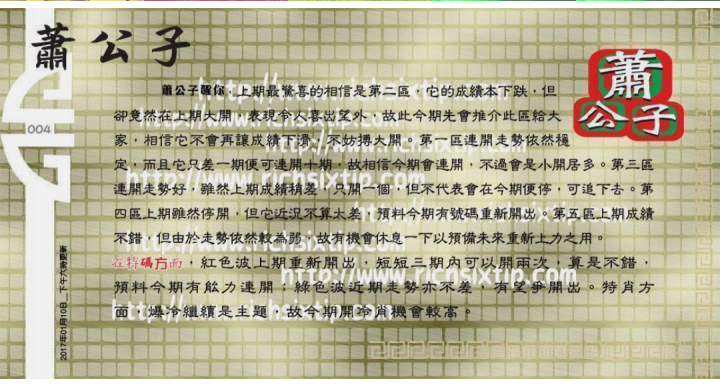 蕭公子
蕭
公子
004
蕭公子醒你，上期最驚喜的相信是第二區，它的成績本下跌，但
卻竟然在上期大開，表現令人喜出望外，故此今期先會推介此區給大
家，相信它不會再讓成績下滑，不妨搏大開。第一區連開走勢依然穩
定，而且它只差一期便可連開十期，故相信今期會連開，不過會是小開居多。第三區
連開走勢好，雖然上期成績稍差，只開一個，但不代表會在今期便停，可追下去。第
四區上期雖然停開，但它近況不算太差，預料今期有號碼重新開出。第五區上期成績
不錯，但由於走勢依然較為弱，故有機會休息一下以預備未來重新上力之用。
在特碼方面，紅色波上期重新開出，短短三期內可以開兩次，算是不錯，
預料今期有能力連開；綠色波近期走勢亦不差，有望爭開出。特肖方
面，爆冷繼續是主題，故今期開冷肖機會較高。
http://www.richsixtip.com
http://www.richsixtip.com
http://www.richsixtip.com
2017年01月10日__下午六時更新